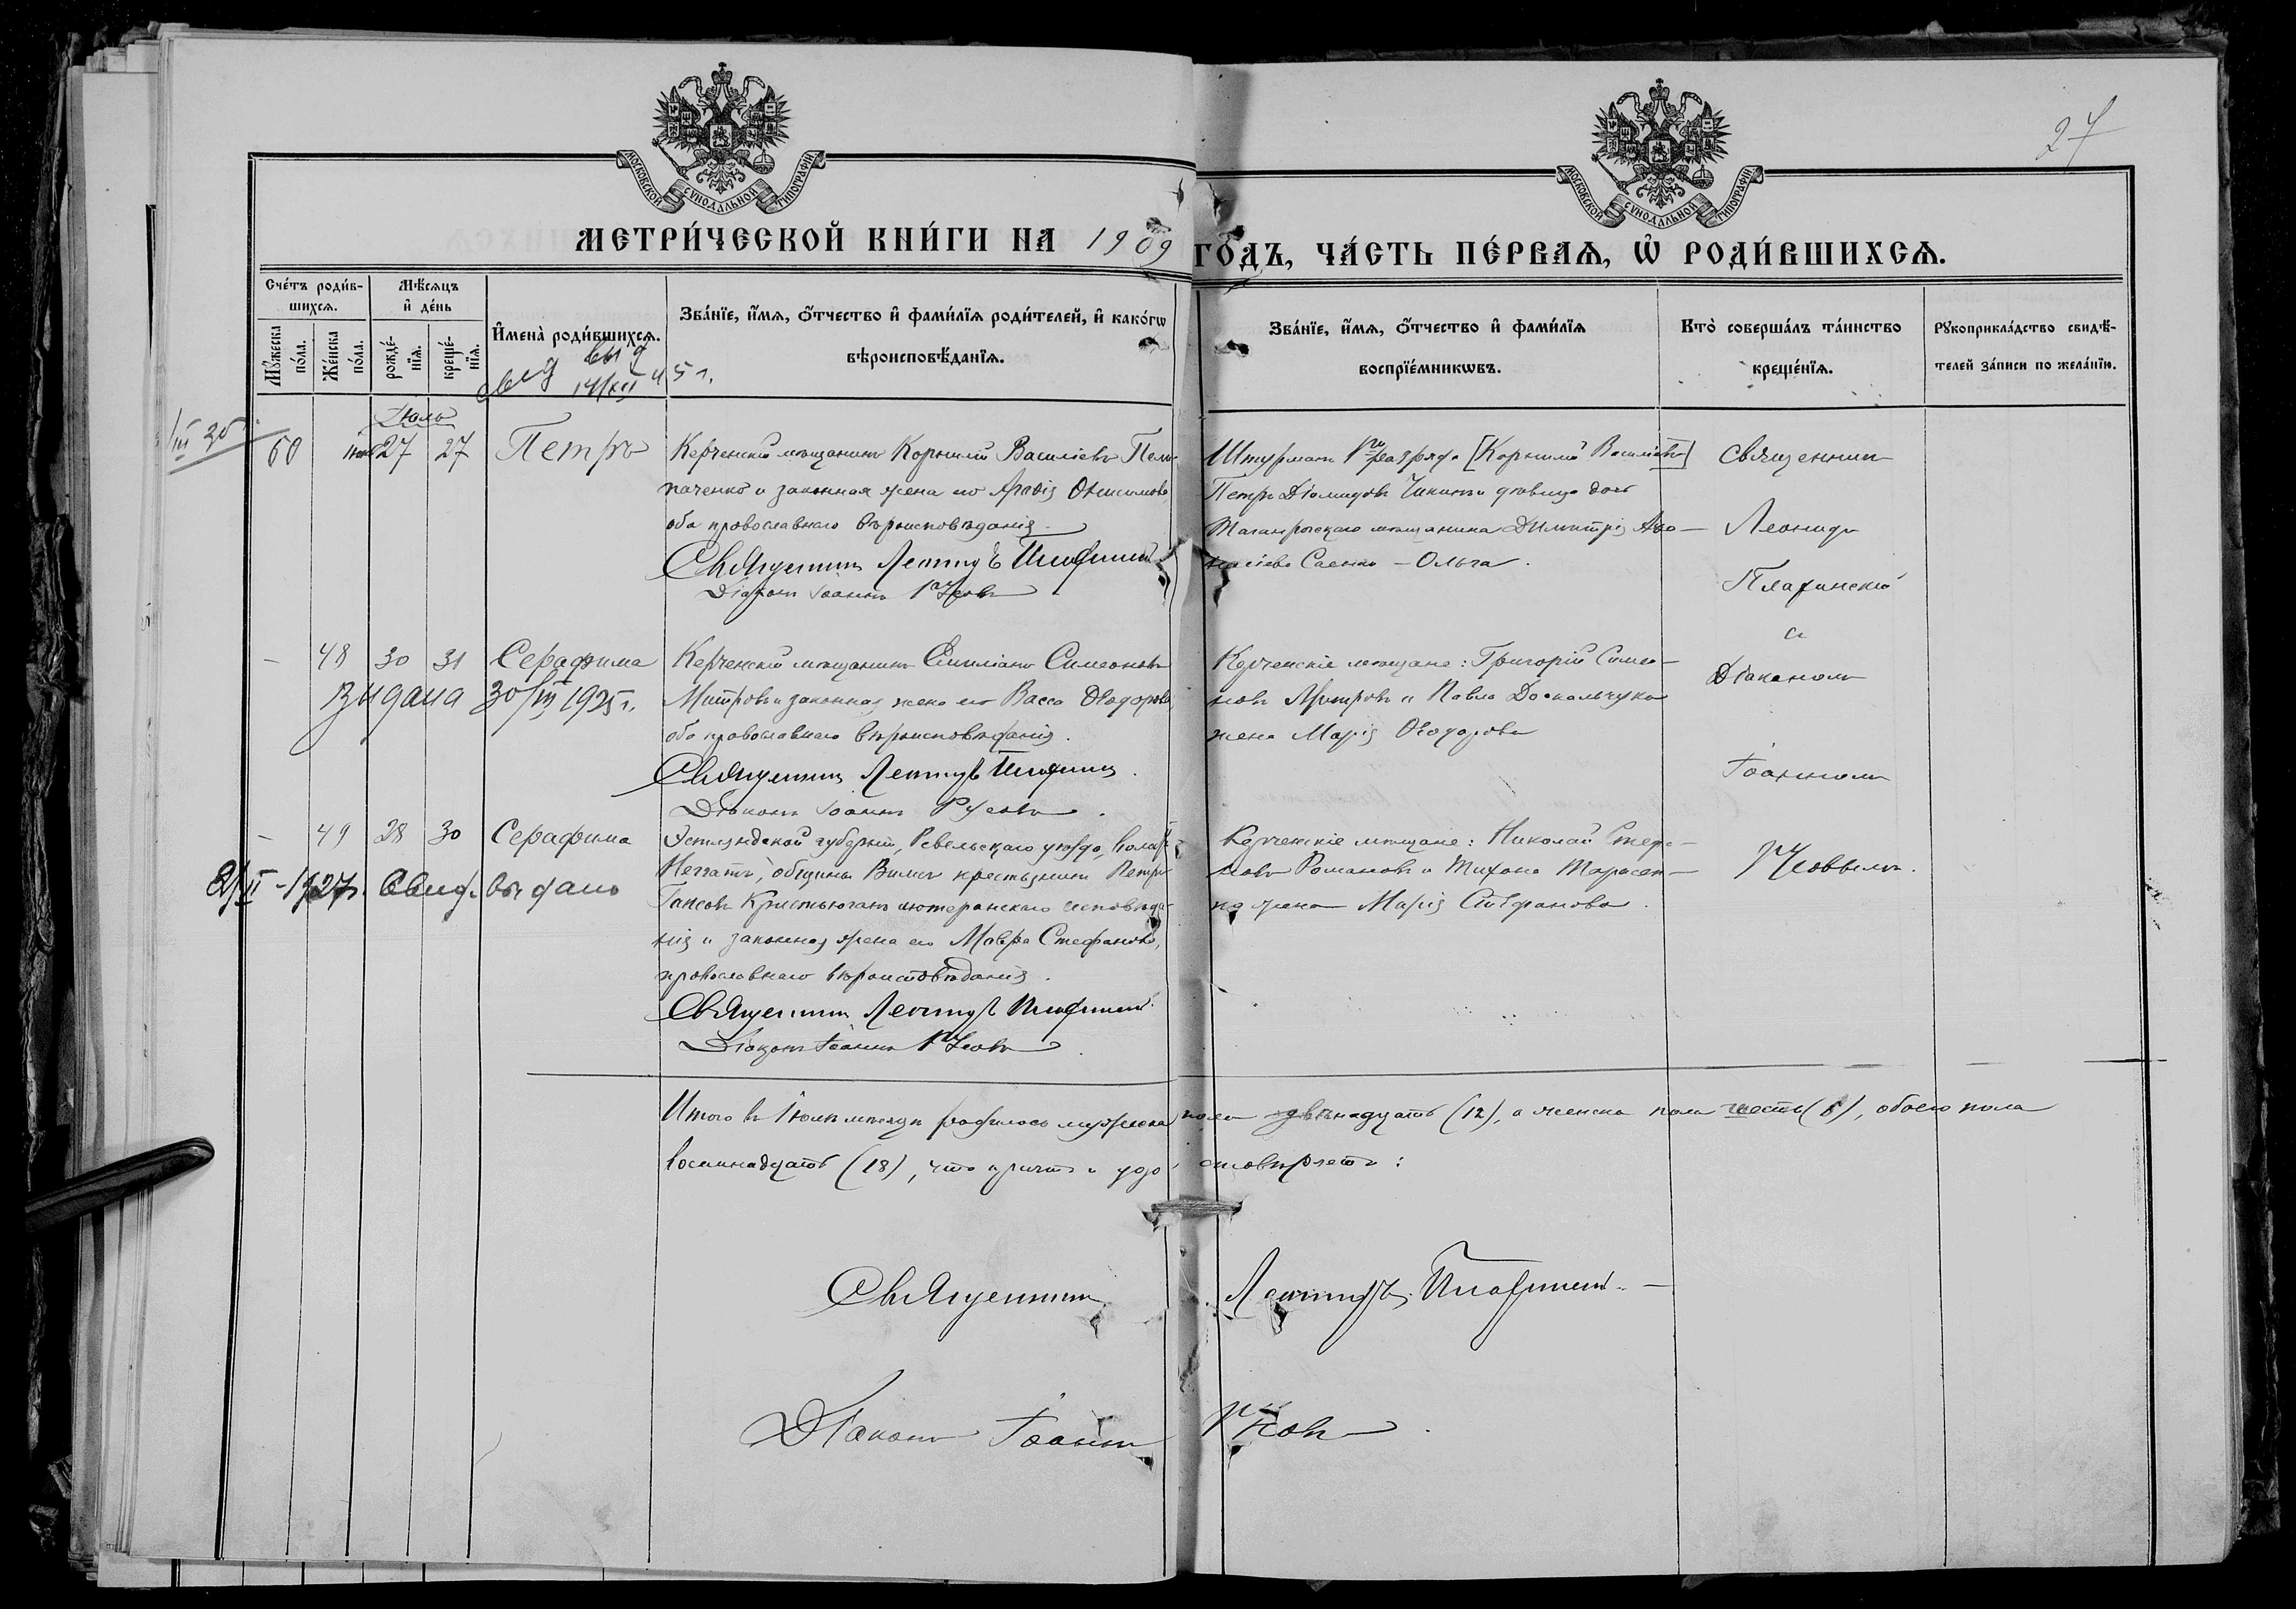 27
МОСКОВСКОЙ СѴНОДАЛЬНОЙ ТИПОГРАФІИ.
МОСКОВСКОЙ СѴНОДАЛЬНОЙ ТИПОГРАФІИ.
МЕТРИ́ЧЕСКОЙ КНИ́ГИ НА 1909 ГО́ДЪ, ЧА́СТЬ ПЕ́РВАѦ, Ѡ҆ РОДИ́ВШИХСѦ.
Сче́тъ роди́в-
шихсѧ.
Мꙋ́жеска по́ла.
Же́нска по́ла.
Мѣ́сѧцъ
и҆ де́нь
рожде́-
нїѧ.
креще́-
нїѧ.
И҆мена̀ роди́вшихсѧ.
Зва́нїе, и҆́мѧ, ѻ҆́тчество и҆ фами́лїѧ роди́телей, и҆ како́гѡ
вѣроисповѣ́данїѧ.
Зва́нїе, и҆́мѧ, ѻ҆́тчество и҆ фами́лїѧ
воспрїе́мникѡвъ.
Кто̀ соверша́лъ та́инство
креще́нїѧ.
Рꙋкоприкла́дство свидѣ́-
телей за́писи по жела́нїю.
выд
14/XII 45 г.
Іюль
60
27
27
Петръ
Керченскій мѣщанинъ Корнилій Василіевъ
и законная жена его
оба православнаго вѣроисповѣданія.
Священникъ Леонидъ
Діаконъ Іоаннъ Русовъ
Штурманъ 1го разряда [Корнилій Василіевъ]
Петръ Діомидовъ и дѣвица дочь
Таганрогскаго мѣщанина Димитрія Аѳа-
насіева Саенко – Ольга.
Священникъ
Леонидъ
и
Діакономъ
Іоанномъ
Русовымъ.
–
48
30
31
Серафима
Видана 30/III 1925 г.
Керченскій мѣщанинъ Емиліанъ Симеоновъ
Митровъ и законная жена его Васса Ѳеодорова,
оба православнаго вѣроисповѣданія.
Священникъ Леонидъ
Діаконъ Іоаннъ Русовъ.
Керченскіе мѣщане: Григорій Симео-
новъ Митровъ и Павла Доскальчука
жена Марія Ѳеодорова
–
49
28
30
Серафима
1927 г. Свид. выдано
Эстляндской губерніи, Ревельскаго уѣзда, волости
общины крестьянинъ Петръ
Гансовъ лютеранскаго исповѣда-
нія и законная жена его Мавра Стефанова,
православнаго вѣроисповѣданія.
Священникъ Леонидъ
Діаконъ Іоаннъ Русовъ
Керченскіе мѣщане: Николай Стефа-
новъ Романовъ и Тихона Тарасен-
ко жена Марія Стефанова.
Итого въ Іюлѣ мѣсяцѣ родилось мужеска пола двѣнадцать (12), а женска пола шесть (6), обоего пола
восемнадцать (18), что причтъ и удостовѣряетъ:
Священникъ Леонидъ
Діаконъ Іоаннъ Русовъ.